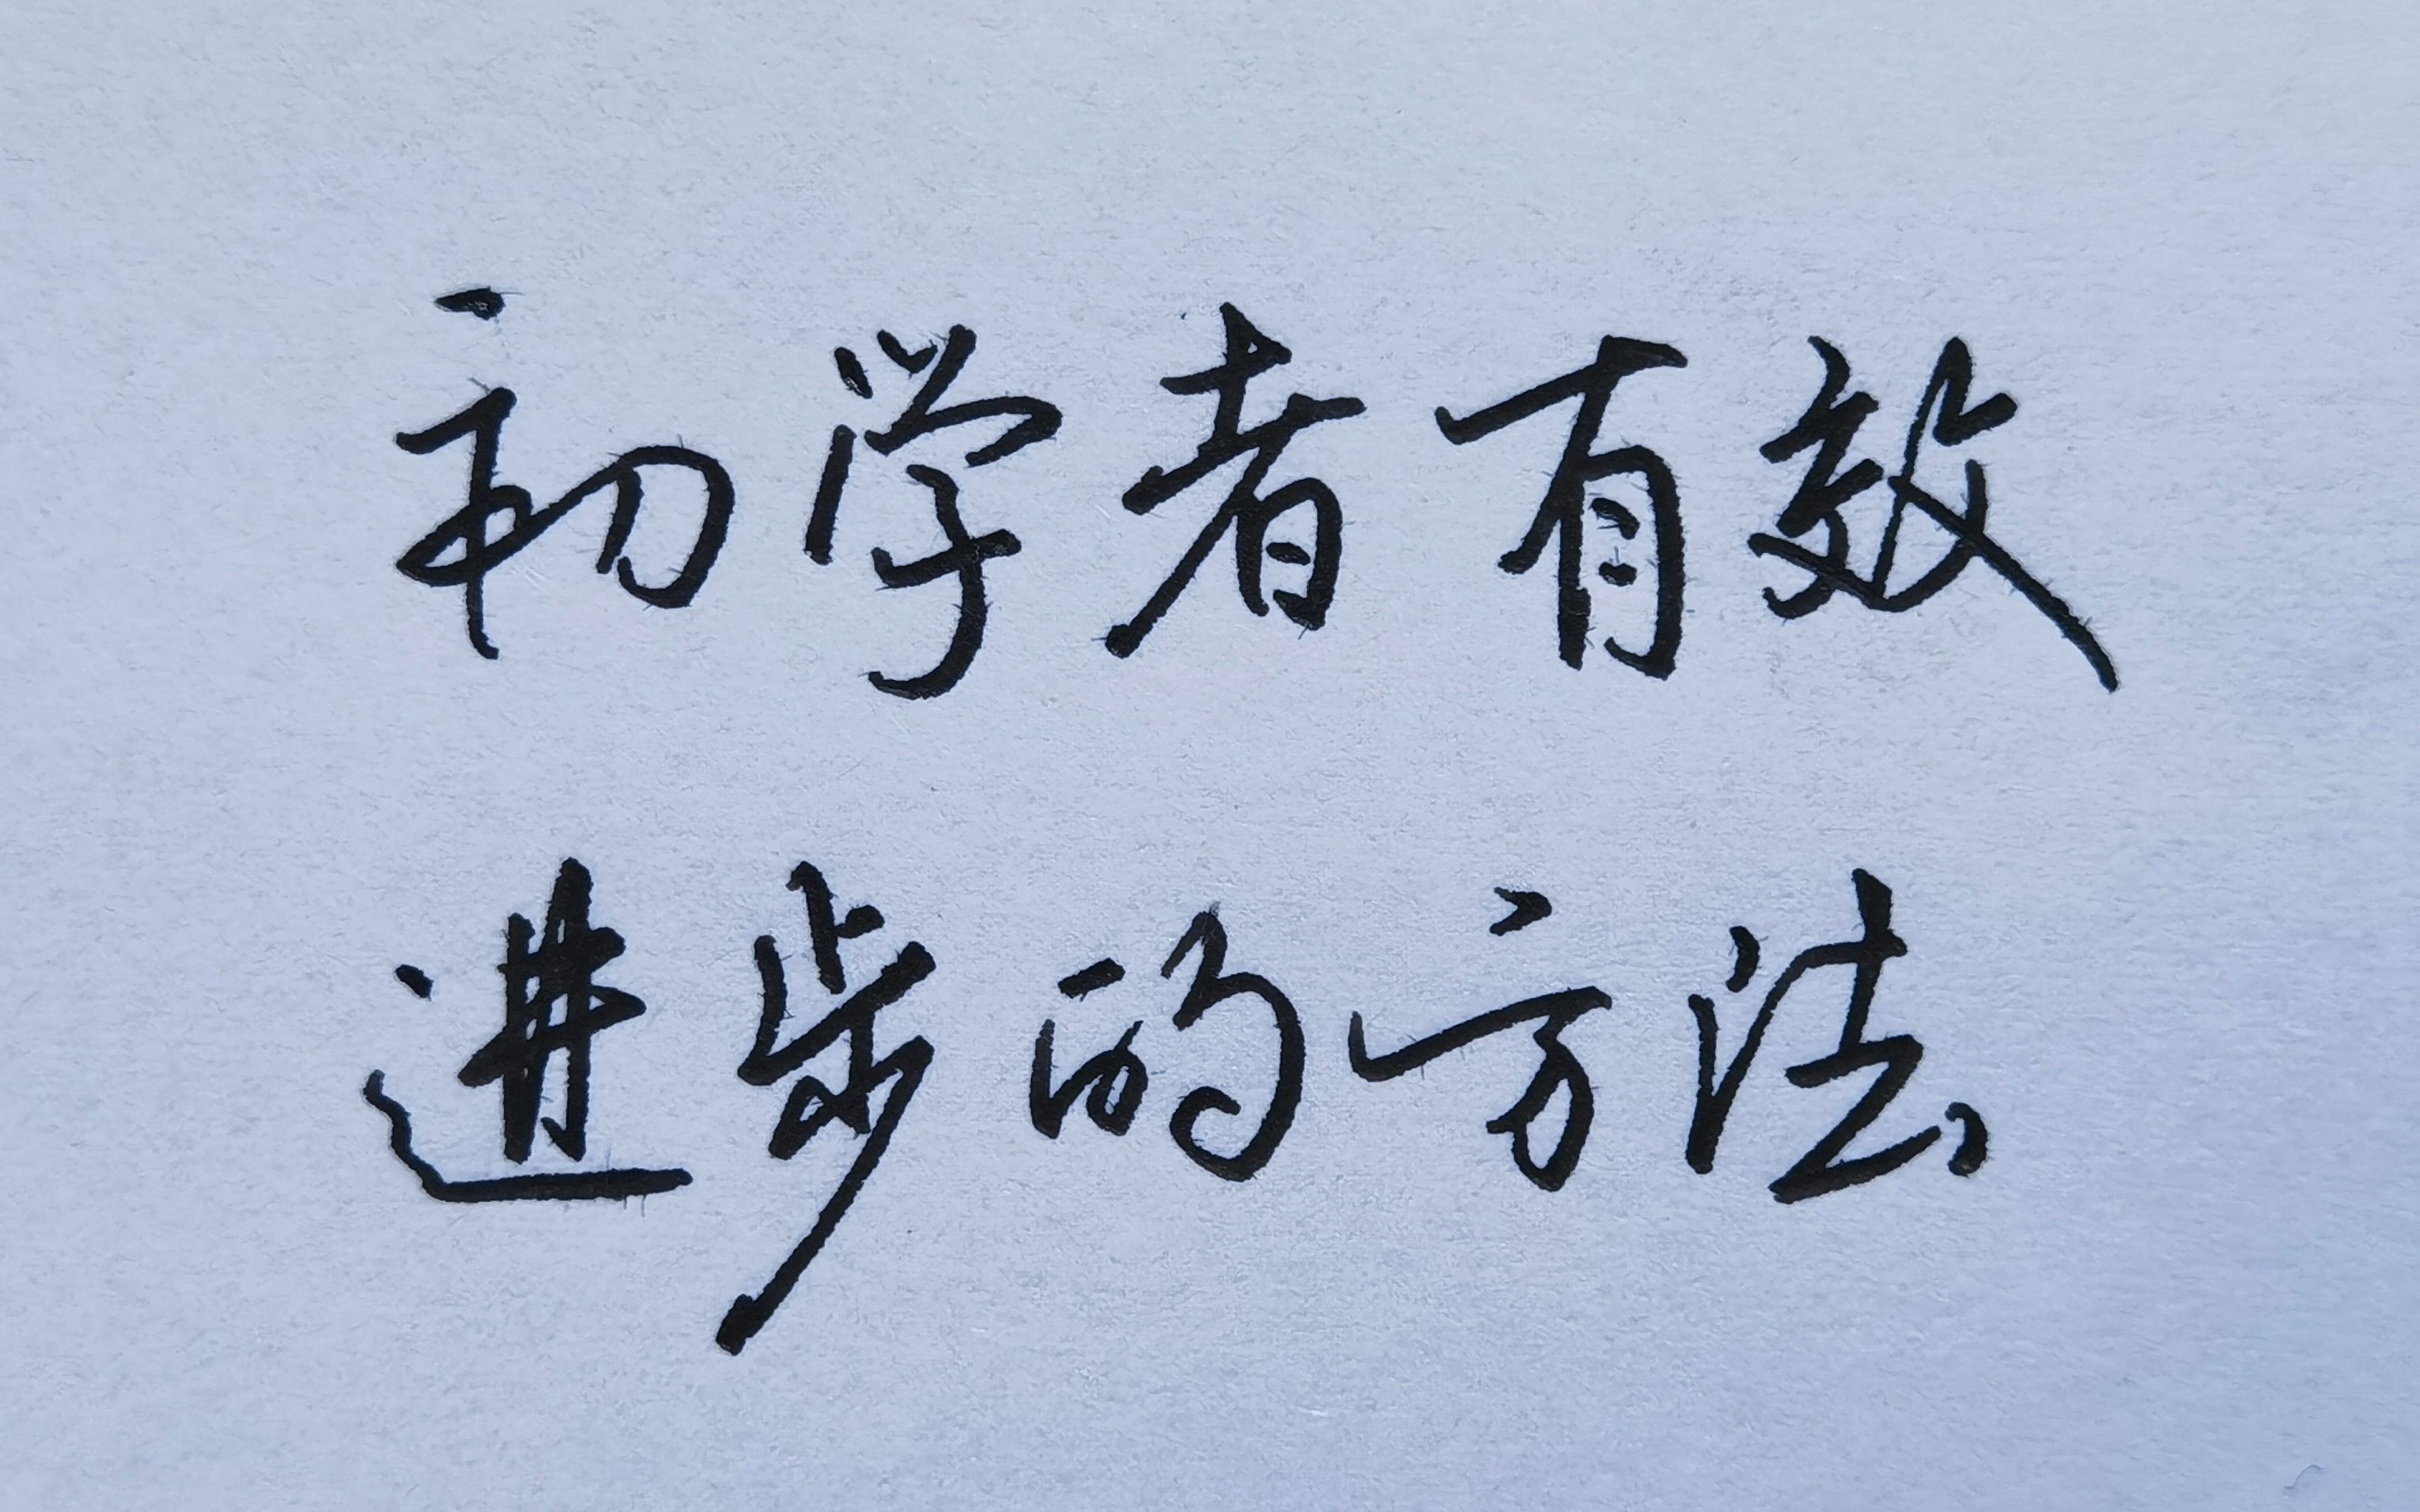 初学者有效
进步的方法